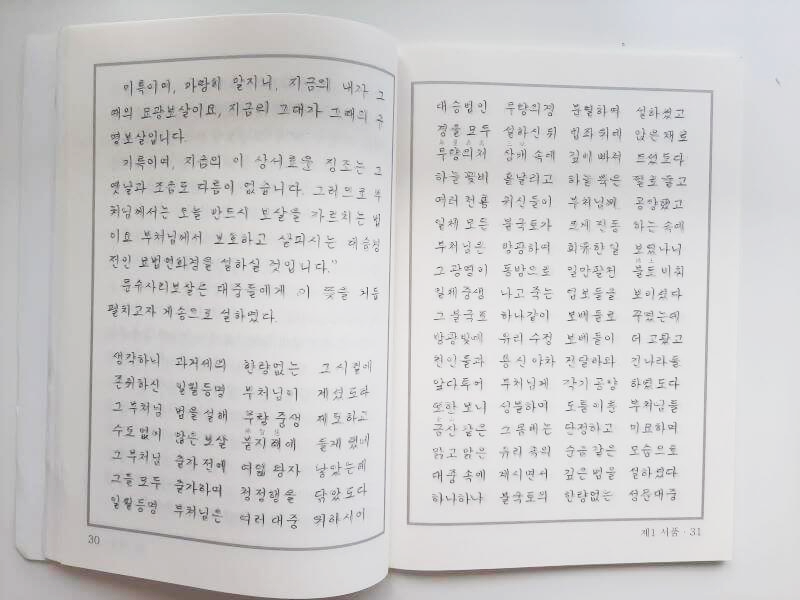 미륵이여, 마땅히 알지니, 지금의 내가 그
때의 묘광보살이요, 지금의 그대가 그때의 구
명보살입니다.
미륵이여, 지금의 이 상서로운 징조는 그
옛날과 조금도 다름이 없습니다. 그러므로 부
처님께서는 오늘 반드시 보살을 가르치는 법
이요 부처님께서 보호하고 살피시는 대승경
전인 묘법연화경을 설하실 것입니다."
문수사리보살은 대중들에게 이 뜻을 거듭
펼치고자 게송으로 설하였다.
생각하니 과거세의 한량없는 그 시절에
존귀하신 일월등명 부처님이 계셨도다
그 부처님 법을 설해 무량 중생 제도하고
수도 없이 많은 보살 붙지혜에 들게 했네
그 부처님 출가 전에 여덟 왕자 낳았는데
그들 모두 출가하며 청정행을 닦았도다
일월등명 부처님은 여러 대중 위하시어
30
대승법인 무량의경 분별하여 설하셨고
경을 모두 설하신 뒤 법좌 위에 앉은 채로
무량의처 삼매 속에 깊이 빠져 드셨도다
하늘 꽃비 흩날리고 하늘 북은 절로 울고
여러 천룡 귀신들이 부처님께 공양했고
일체 모든 불국토가 크게 진동 하는 속에
부처님은 방광하여 희유한 일 보였나니
그 광명이 동방으로 일만팔천 불토 비춰
일체 중생 나고 죽는 업보들을 보이셨다
그 불국토 하나같이 보배들로 꾸몄는데
방광 빛에 유리 수정 보배들이 더 고왔고
천인들과 용신 야차 건달바와 긴나라들
앞다투어 부처님께 각기 공양 하였도다
또한 보니 성불하여 도를 이룬 부처님들
금산 같은 그 몸매는 단정하고 미묘하며
맑고 맑은 유리 속의 순금 같은 모습으로
대중 속에 계시면서 깊은 법을 설하셨다
하나하나 불국토의 한량없는 성문대중
제1 서품 · 31